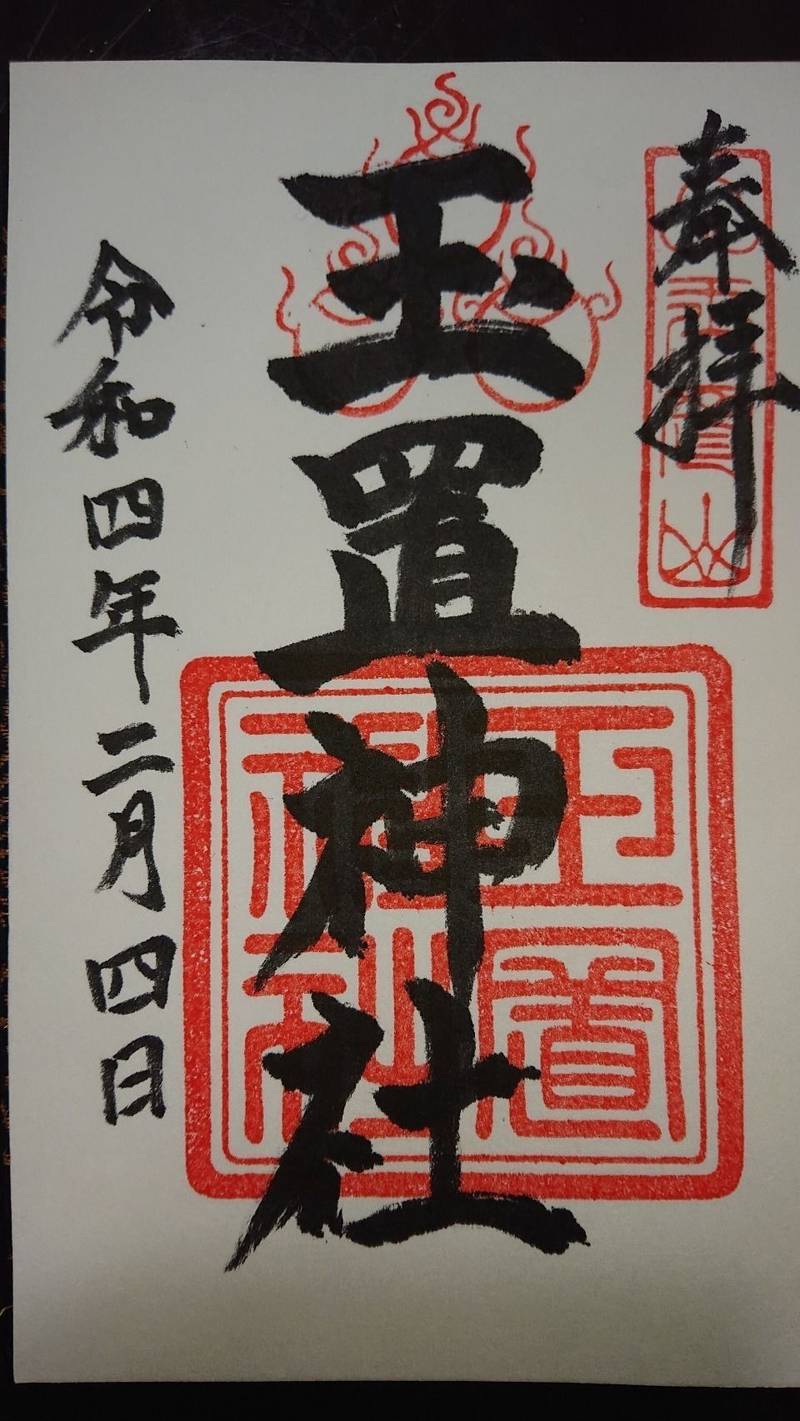 奉拝
玉置神社
令和四年二月四日
玉置神社